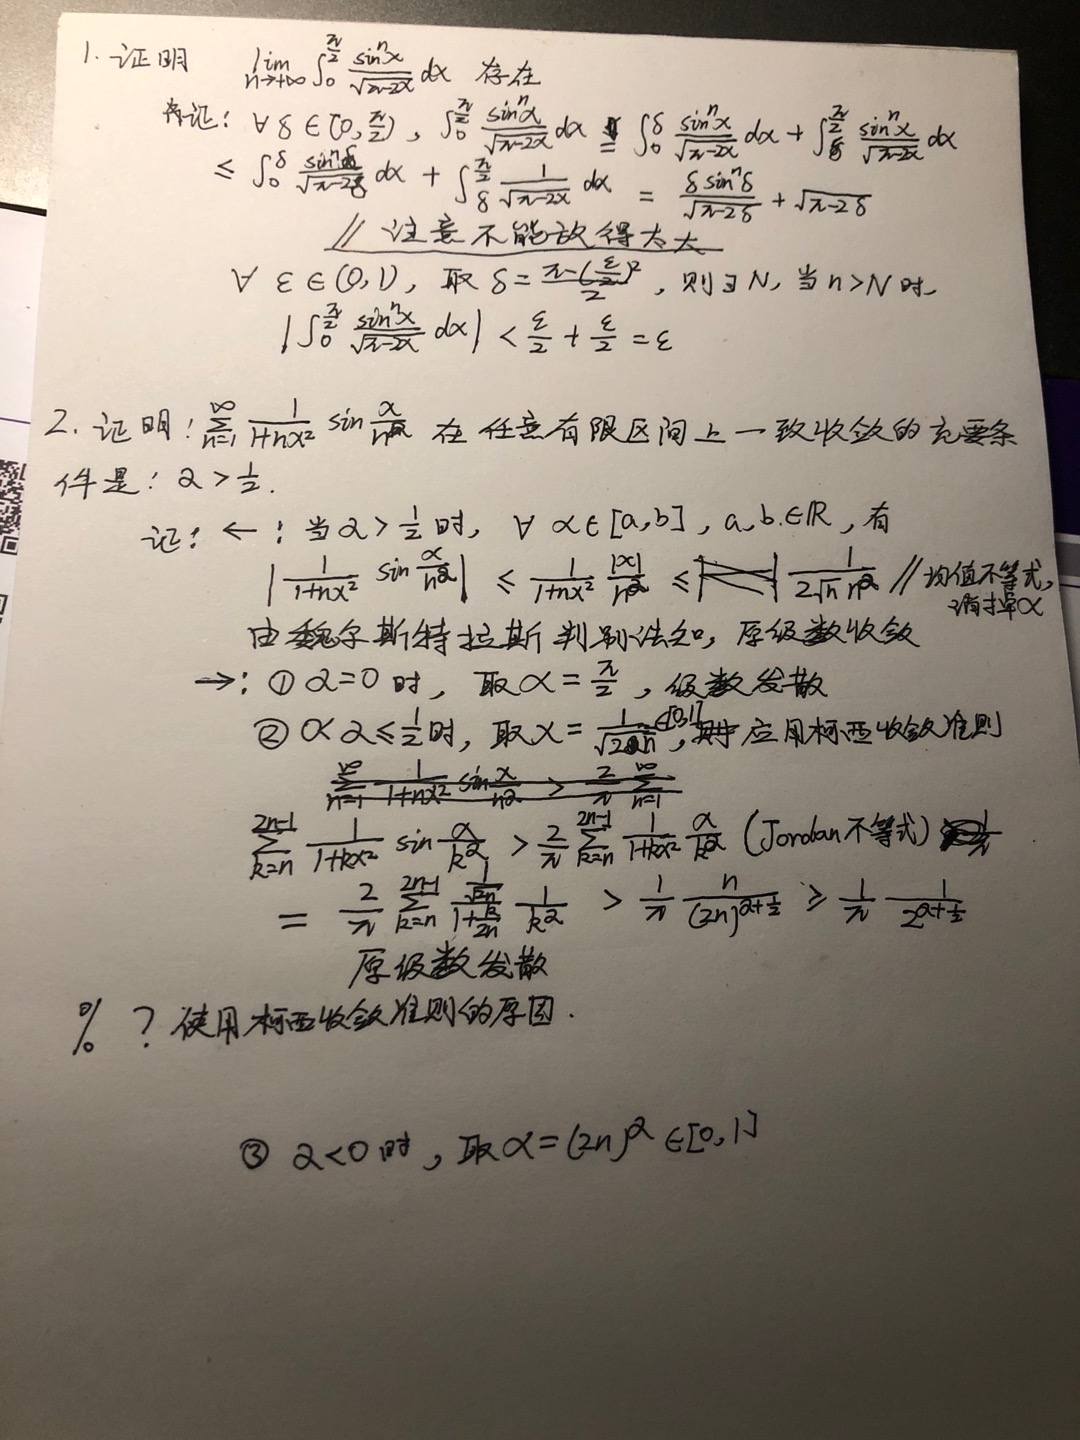 1. 证明 lim_{n→+∞} ∫_0^{π/2} sin^n x / √(π-2x) dx 存在
证: ∀ δ ∈ (0, π/2), ∫_0^{π/2} sin^n x / √(π-2x) dx = ∫_0^δ sin^n x / √(π-2x) dx + ∫_δ^{π/2} sin^n x / √(π-2x) dx
≤ ∫_0^δ sin^n δ / √(π-2δ) dx + ∫_δ^{π/2} 1 / √(π-2x) dx = δ sin^n δ / √(π-2δ) + √(π-2δ)
// 注意不能放得太大
∀ ε ∈ (0,1), 取 δ = (π-(ε/2)²)/2, 则∃N, 当n>N时,
|∫_0^{π/2} sin^n x / √(π-2x) dx| < ε/2 + ε/2 = ε
2. 证明: ∑_{n=1}^∞ 1/(1+nx²) sin x/n^α 在任意有限区间上一致收敛的充要条
件是: α > 1/2.
证: ←: 当 α > 1/2 时, ∀ x∈[a,b], a,b∈ℝ, 有
|1/(1+nx²) sin x/n^α| ≤ 1/(1+nx²) |x|/n^α ≤ 1/(2√n n^α) // 均值不等式,
消掉x
由魏尔斯特拉斯判别法知, 原级数收敛
→: ① α=0 时, 取x = π/2, 级数发散
② 0<α≤1/2时, 取x = 1/√(2n) ∈[0,1], 应用柯西收敛准则
∑_{n=1}^∞ 1/(1+nx²) sin x/n^α > 2/π ∑_{n=1}^∞
∑_{k=n}^{2n-1} 1/(1+kx²) sin x/k^α > 2/π ∑_{k=n}^{2n-1} 1/(1+kx²) x/k^α (Jordan不等式)
= 2/π ∑_{k=n}^{2n-1} (1/√(2n))/(1+k/2n) 1/k^α > 1/π n/(2n)^{α+1/2} ≥ 1/π 1/2^{α+1/2}
原级数发散
% ? 使用柯西收敛准则的原因.
③ α<0 时, 取x = (2n)^α ∈[0,1]